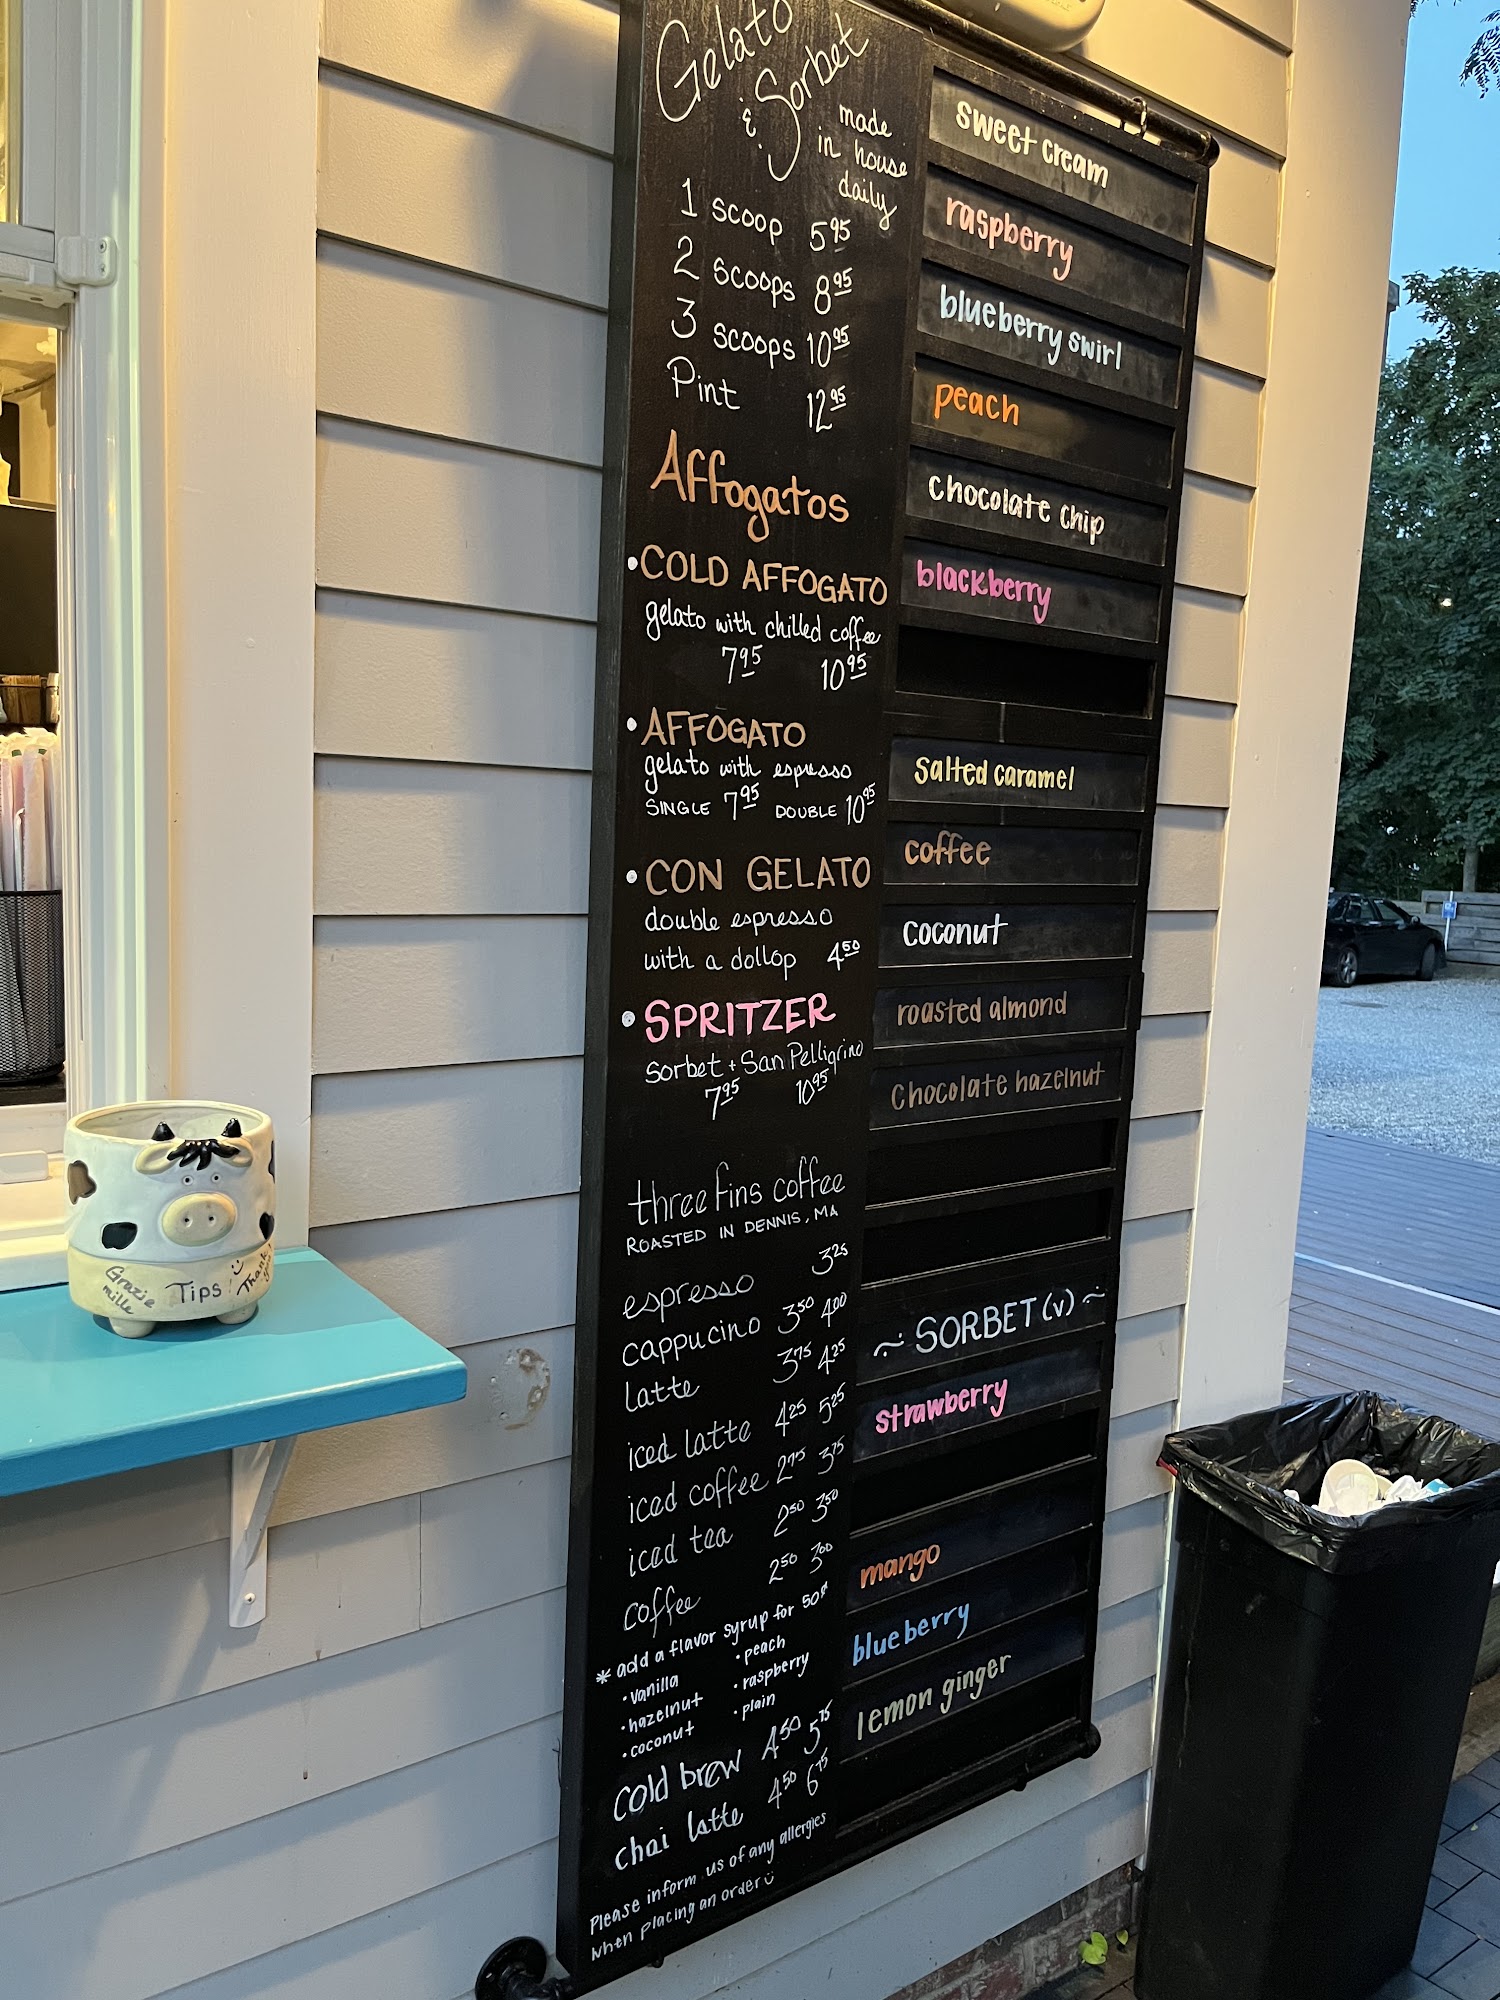 Gelato
& Sorbet
made
in house
daily
1 scoop 5.95
2 scoops 8.95
3 scoops 10.95
Pint 12.95
Affogatos
• COLD AFFOGATO
gelato with chilled coffee
7.95 10.95
• AFFOGATO
gelato with espresso
SINGLE 7.95 DOUBLE 10.95
• CON GELATO
double espresso
with a dollop 4.50
• SPRITZER
Sorbet + San Pelligrino
7.95 10.95
three fins coffee
ROASTED IN DENNIS, MA
espresso 3.25
cappucino 3.50 4.00
latte 3.75 4.25
iced latte 4.25 5.25
iced coffee 2.75 3.75
iced tea 2.50 3.50
coffee 2.50 3.00
* add a flavor syrup for 50¢
• vanilla
• hazelnut
• coconut
• peach
• raspberry
• plain
cold brew 4.50 5.75
chai latte 4.50 6.75
Please inform us of any allergies
when placing an order
sweet cream
raspberry
blueberry swirl
peach
chocolate chip
blackberry
salted caramel
coffee
coconut
roasted almond
Chocolate hazelnut
~ SORBET (v) ~
strawberry
mango
blueberry
lemon ginger
Grazie
mille
Tips!
Thank
you!